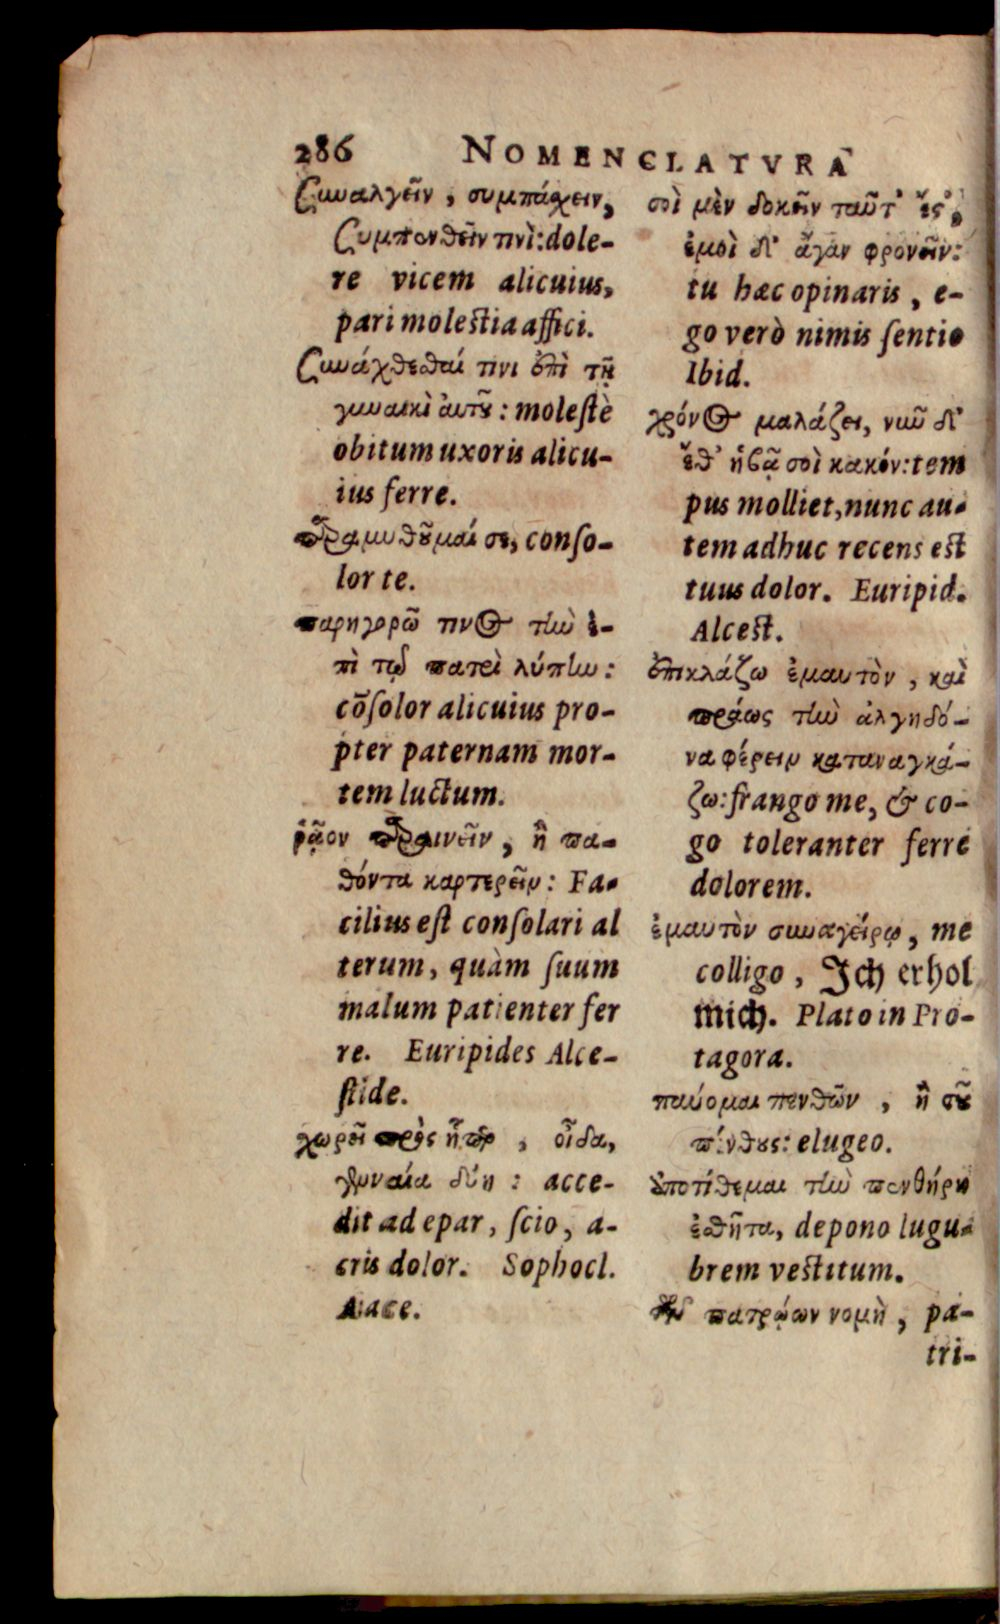 286 NOMENCLATVRA
Συναλγεῖν, συμπάσχειν,
Συμπενθεῖν τινὶ: dole-
re vicem alicuius,
pari molestia affici.
Συνάχθεσθαί τινι ἐπὶ τῇ
γυναικὶ αὐτοῦ: molestè
obitum uxoris alicu-
ius ferre.
παραμυθοῦμαί σε, conſo-
lor te.
παρηγορῶ τινος τὴν ἐ-
πὶ τῷ πατρὶ λύπην:
cõſolor alicuius pro-
pter paternam mor-
tem luctum.
ῥᾷον παραινεῖν, ἢ πα-
θόντα καρτερεῖν: Fa-
cilius eſt conſolari al
terum, quàm ſuum
malum patienter fer
re. Euripides Alce-
ſtide.
χωρεῖ πρὸς ἧπαρ, οἶδα,
γενναία δύη: acce-
dit ad epar, ſcio, a-
cris dolor. Sophocl.
Aiace.
σοὶ μὲν δοκεῖν ταῦτ' ἔς',
ἐμοὶ δ' ἄγαν φρονεῖν:
tu hæc opinaris, e-
go verò nimis ſentio
Ibid.
χρόνος μαλάξει, νῦν δ'
ἔθ' ἡβᾷ σοὶ κακόν: tem
pus molliet, nunc au-
tem adhuc recens est
tuus dolor. Euripid.
Alcest.
ἐπικλάζω ἐμαυτὸν, καὶ
πράως τὴν ἀλγηδό-
να φέρειν καταναγκά-
ζω: frango me, & co-
go toleranter ferre
dolorem.
ἐμαυτὸν συναγείρω, me
colligo, Ich erhol
mich. Plato in Pro-
tagora.
παύομαι πενθῶν, ἢ τοῦ
πένθους: elugeo.
ὑποτίθεμαι τὴν πενθήρη
ἐσθῆτα, depono lugu-
brem vestitum.
τῶν πατρῴων νομὴ, pa-
tri-